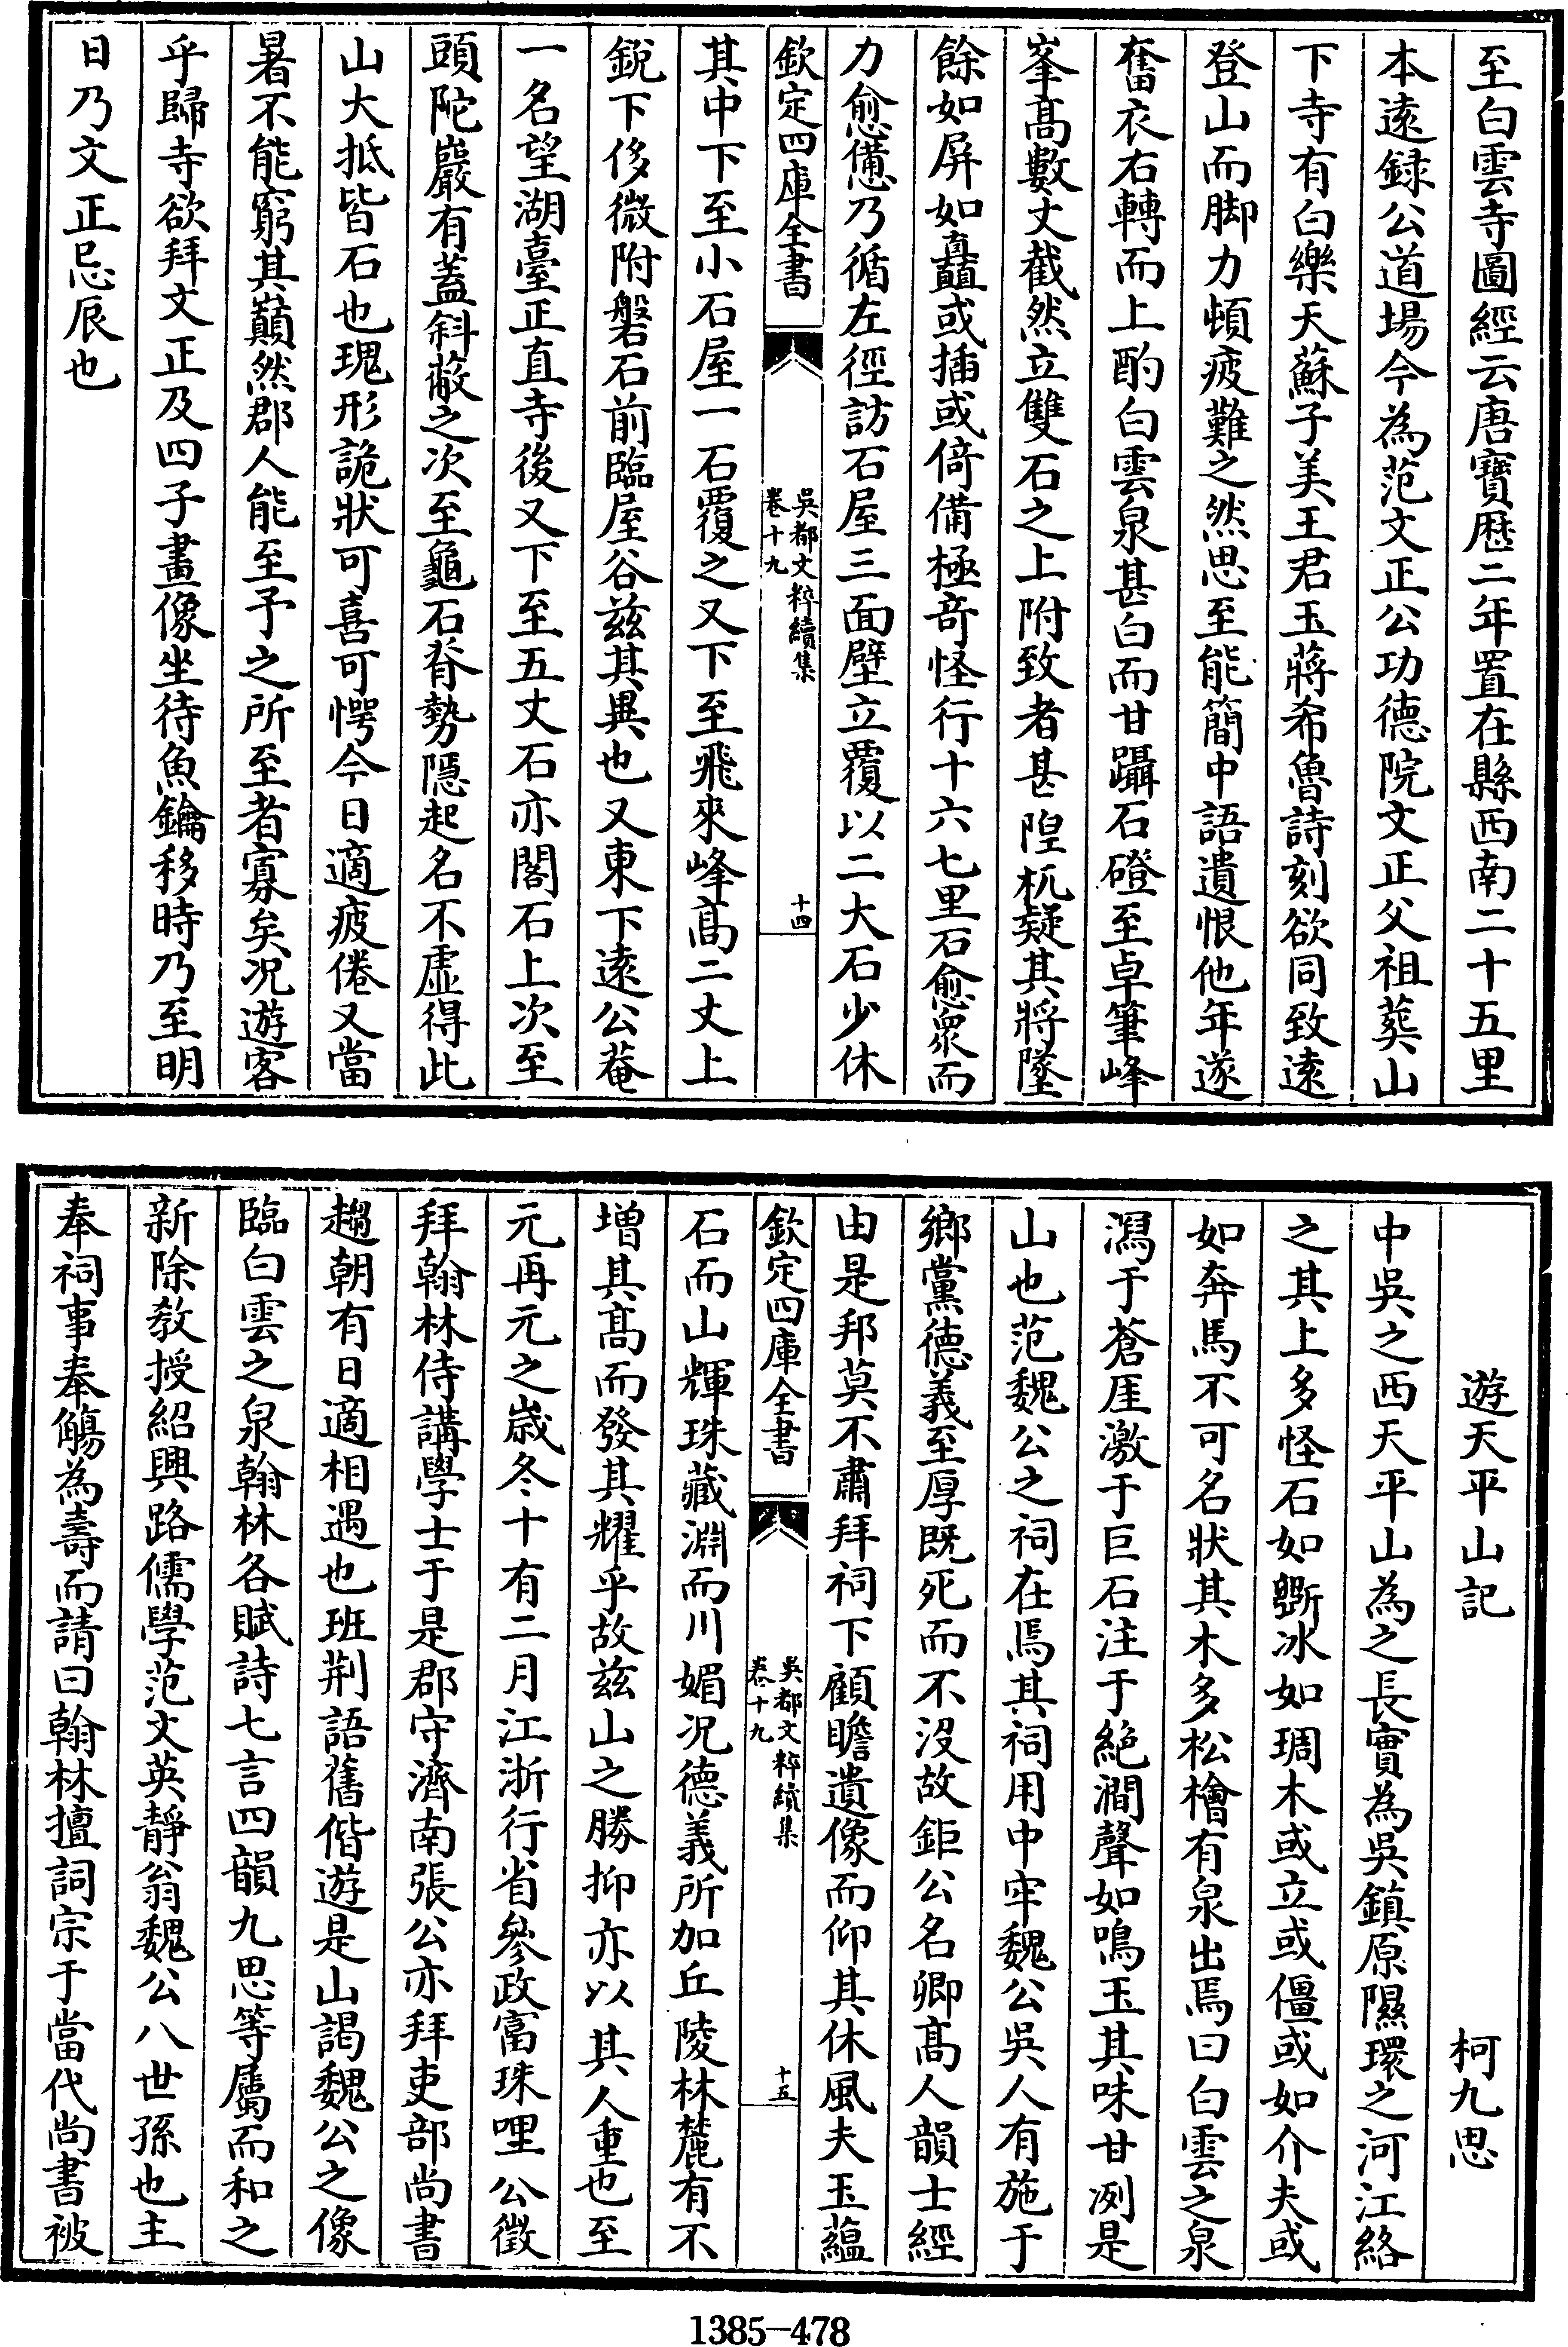 至白雲寺圖經云唐寶厯二年置在縣西南二十五里
本遠録公道場今為范文正公功德院文正父祖葬山
下寺有白樂天蘇子美王君玉蔣希魯詩刻欲同致遠
登山而脚力頓疲難之然思至能簡中語遺恨他年遂
奮衣右轉而上酌白雲泉甚白而甘躡石磴至卓筆峰
峯髙數丈截然立雙石之上附致者甚隉杌疑其將墜
餘如屏如矗或插或倚備極竒怪行十六七里石愈衆而
力愈憊乃循左徑訪石屋三面壁立覆以二大石少休
欽定四庫全書
吳都文粹續集
卷十九
十四
其中下至小石屋一石覆之又下至飛來峰髙二丈上
銳下侈微附磐石前臨屋谷兹其異也又東下逺公菴
一名望湖臺正直寺後又下至五丈石亦閣石上次至
頭陀巖有蓋斜蔽之次至龜石脊勢隱起名不虛得此
山大抵皆石也瑰形詭狀可喜可愕今日適疲倦又當
暑不能窮其巔然郡人能至予之所至者寡矣况遊客
乎歸寺欲拜文正及四子畫像坐待魚鑰移時乃至明
日乃文正忌辰也
遊天平山記
柯九思
中吳之西天平山為之長實為吳鎮原隰環之河江絡
之其上多怪石如斲冰如琱木或立或僵或如介夫或
如奔馬不可名狀其木多松檜有泉出焉曰白雲之泉
瀉于蒼厓激于巨石注于絶澗聲如鳴玉其味甘冽是
山也范魏公之祠在焉其祠用中牢魏公吳人有施于
鄉黨德義至厚既死而不沒故鉅公名卿髙人韻士經
由是邦莫不肅拜祠下顧瞻遺像而仰其休風夫玉蘊
欽定四庫全書
吳都文粹續集
卷十九
十五
石而山輝珠藏淵而川媚况德義所加丘陵林麓有不
增其髙而發其耀乎故兹山之勝抑亦以其人重也至
元再元之嵗冬十有二月江浙行省參政富珠哩公徵
拜翰林侍講學士于是郡守濟南張公亦拜吏部尚書
趨朝有日適相遇也班荆語舊偕遊是山謁魏公之像
臨白雲之泉翰林各賦詩七言四韻九思等屬而和之
新除教授紹興路儒學范文英靜翁魏公八世孫也主
奉祠事奉觴為壽而請曰翰林擅詞宗于當代尚書被
1385—478